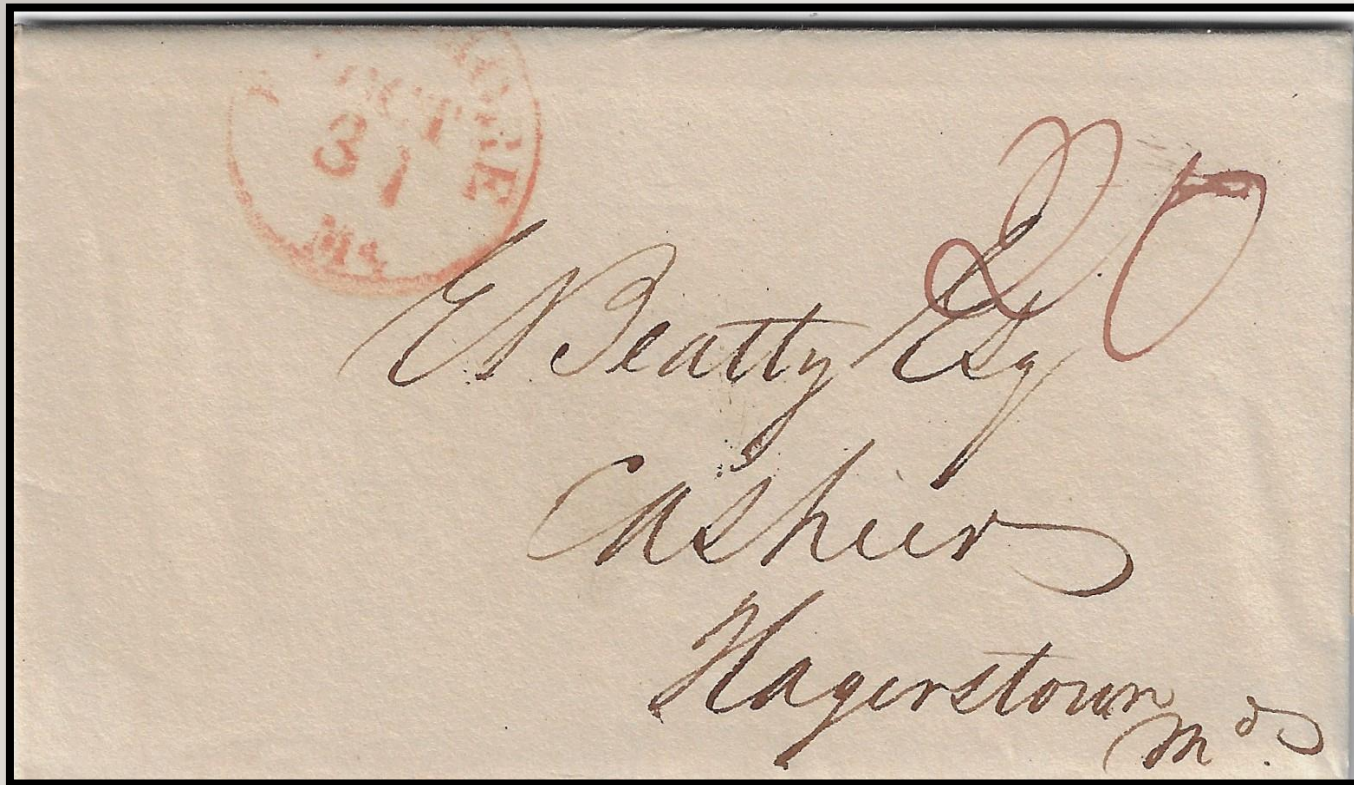 OCT
31
Md
20
E Beatty Esq
Cashier
Hagerstown
Md